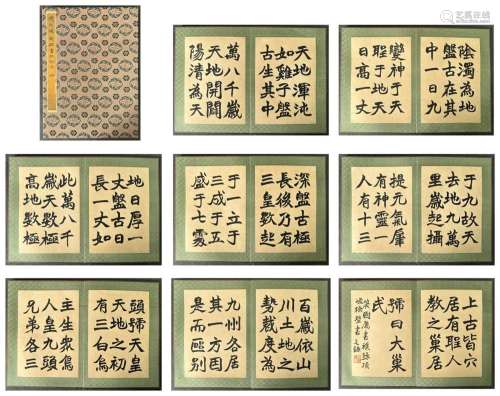 天地渾沌
如雞子盤
古生其中
萬八千歲
天地開闢
陽清為天
陰濁為地
盤古在其
中一日九
變神于天
聖于地天
日高一丈
地日厚一
丈盤古日
長一丈如
此萬八千
歲天數極
高地數極
深盤古極
長後乃有
三皇數起
于一立于
三成于五
盛于七處
于九故天
去地九萬
里歲起攝
提元氣肇
有神靈一
人有十三
頭號天皇
天地之初
有三白烏
主生眾烏
人皇九頭
兄弟各三
百歲依山
川土地之
勢裁度為
九州各居
其一方因
是而區別
上古皆穴
居有聖人
教之巢居
號曰大巢
氏